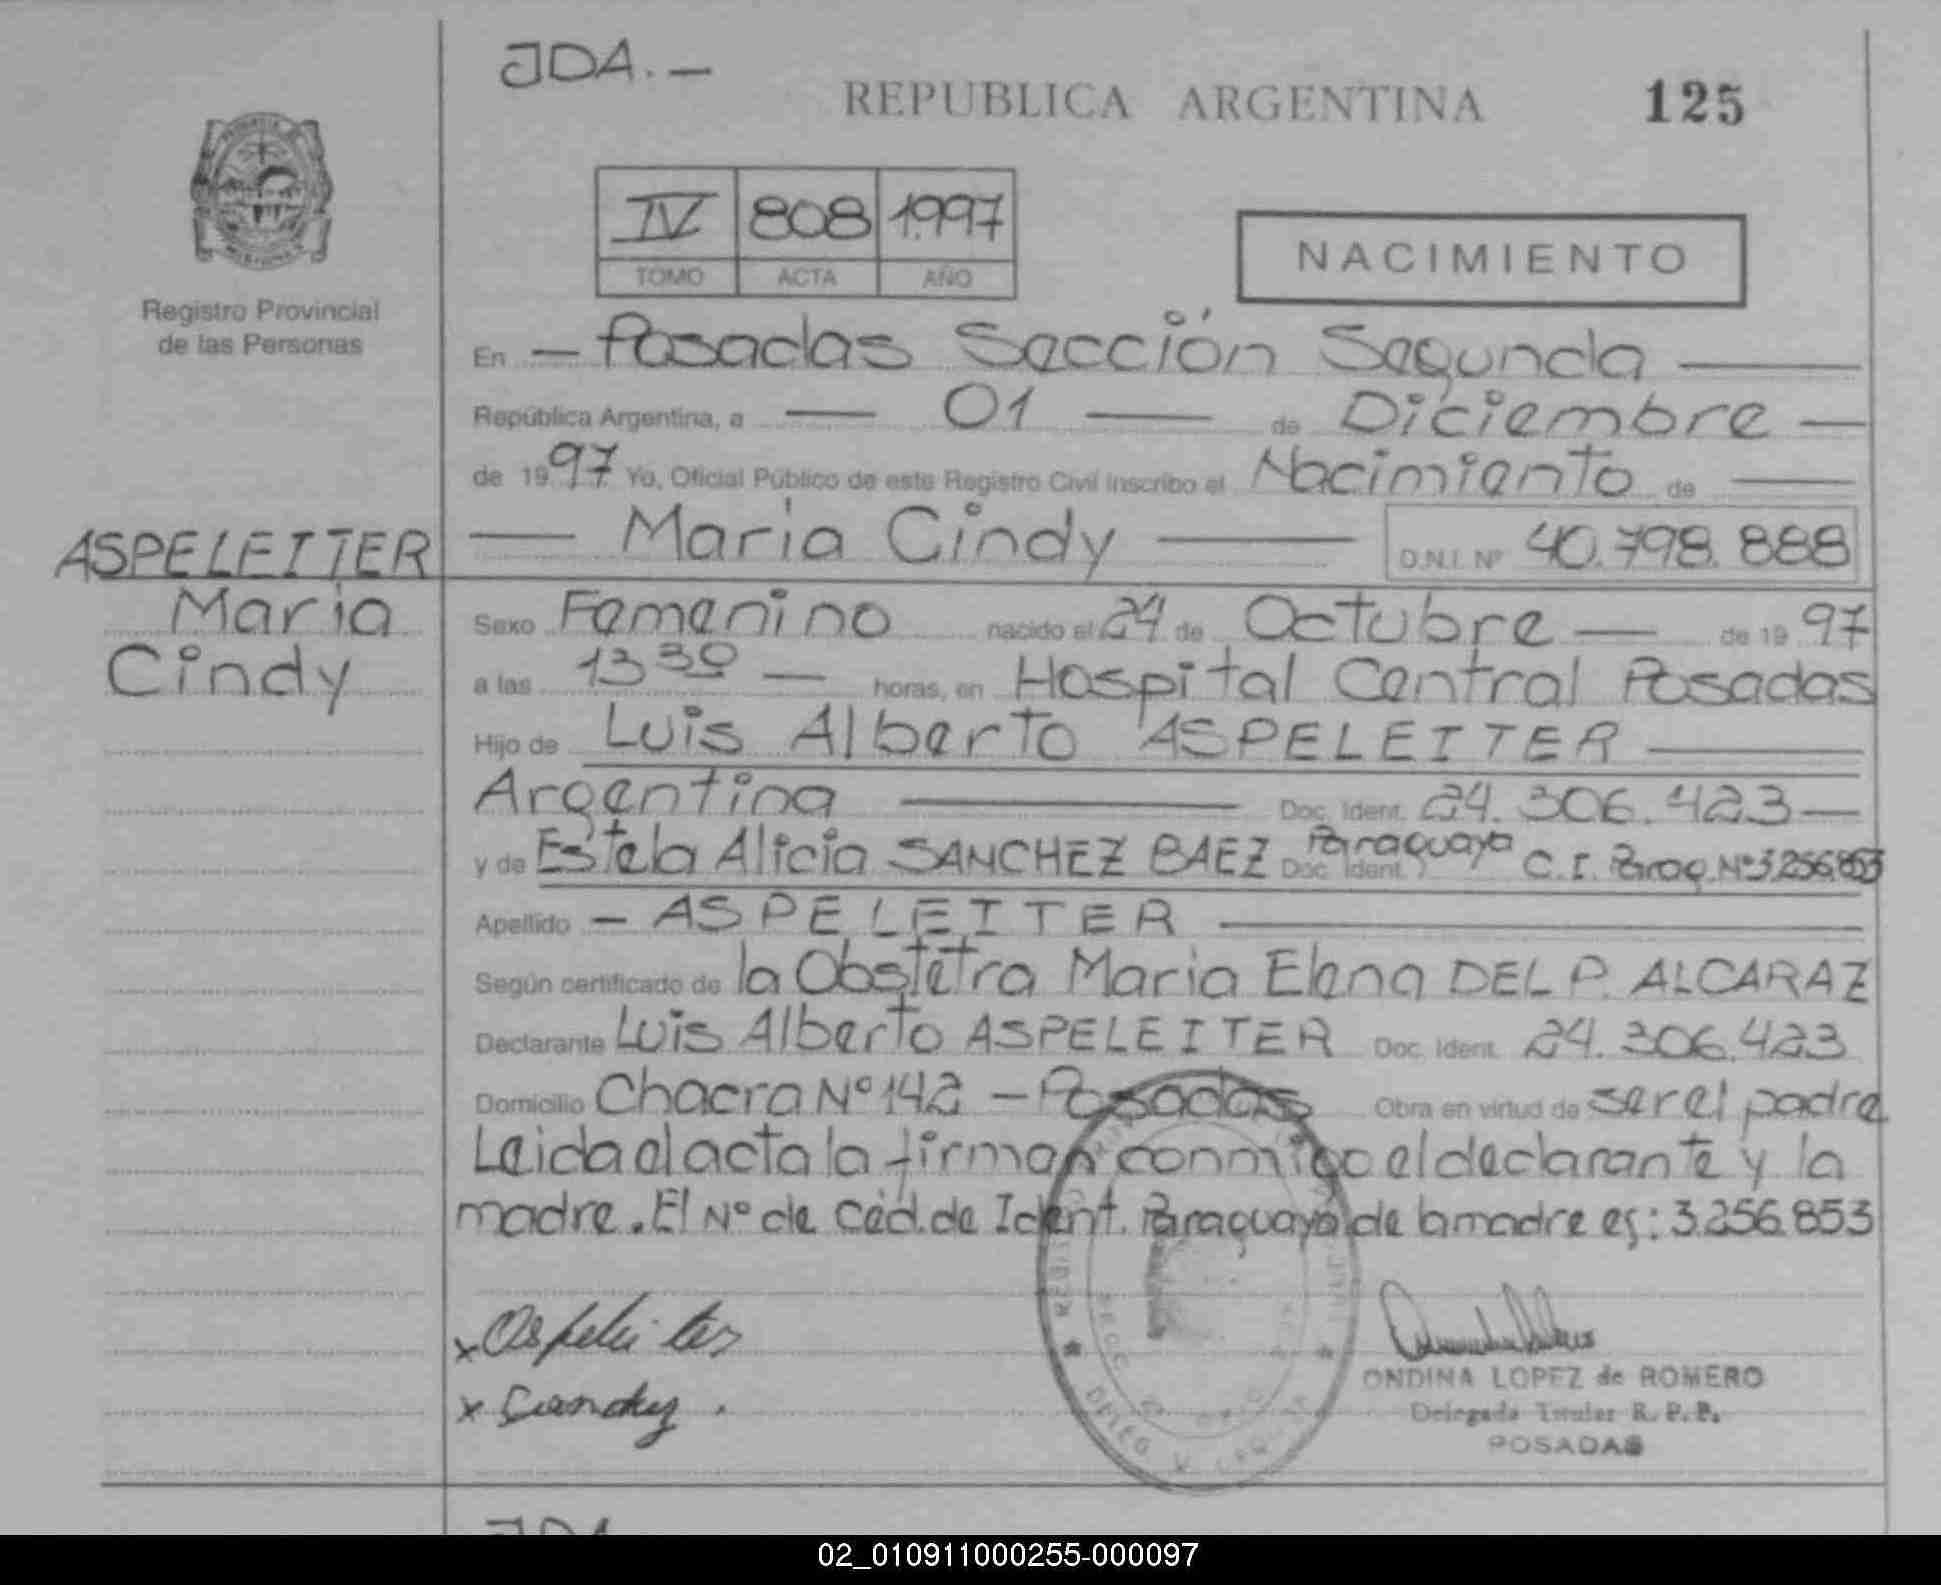 JDA.—
REPUBLICA ARGENTINA 125
IV 808 1.997
TOMO ACTA AÑO
NACIMIENTO
Registro Provincial
de las Personas
En — Posadas Sección Segunda —
República Argentina, a — 01 — de Diciembre —
de 1997 Yo, Oficial Público de este Registro Civil inscribo el Nacimiento de —
— Maria Cindy — D.N.I. Nº 40.798.888
ASPELEITER
Maria
Cindy
Sexo Femenino nacido el 24 de Octubre — de 19 97
a las 13 30 — horas, en Hospital Central Posadas
Hijo de Luis Alberto ASPELEITER —
Argentina — Doc. Ident. 24.306.423 —
y de Estela Alicia SANCHEZ BAEZ Paraguaya Doc. Ident. C.I. Parag. Nº 3.256.853
Apellido — ASPELEITER —
Según certificado de la Obstetra Maria Elena DEL P. ALCARAZ
Declarante Luis Alberto ASPELEITER Doc. Ident. 24.306.423
Domicilio Chacra Nº 142 — Posadas Obra en virtud de ser el padre
Leida el acta la firman conmigo el declarante y la
madre. El Nº de Céd. de Ident. Paraguaya de la madre es: 3.256.853
x Aspeleiter
x
ONDINA LOPEZ de ROMERO
Delegada Titular R. P. P.
POSADAS
JDA
02_010911000255-000097